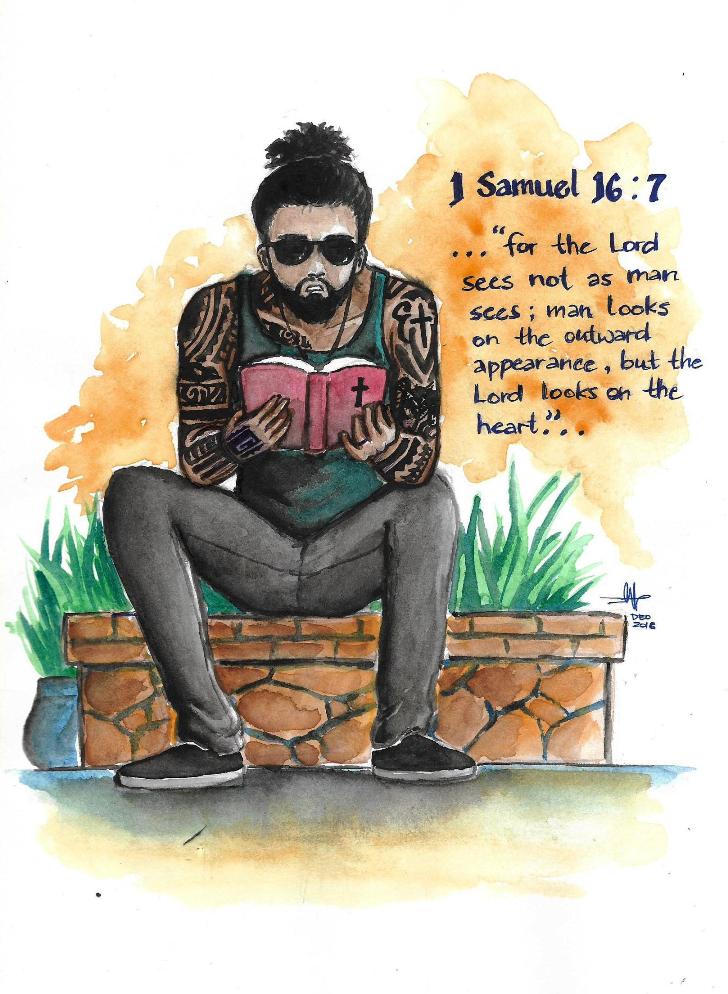 1 Samuel 16:7
..."for the Lord
sees not as man
sees; man looks
on the outward
appearance, but the
Lord looks on the
heart."..
DEO
2016